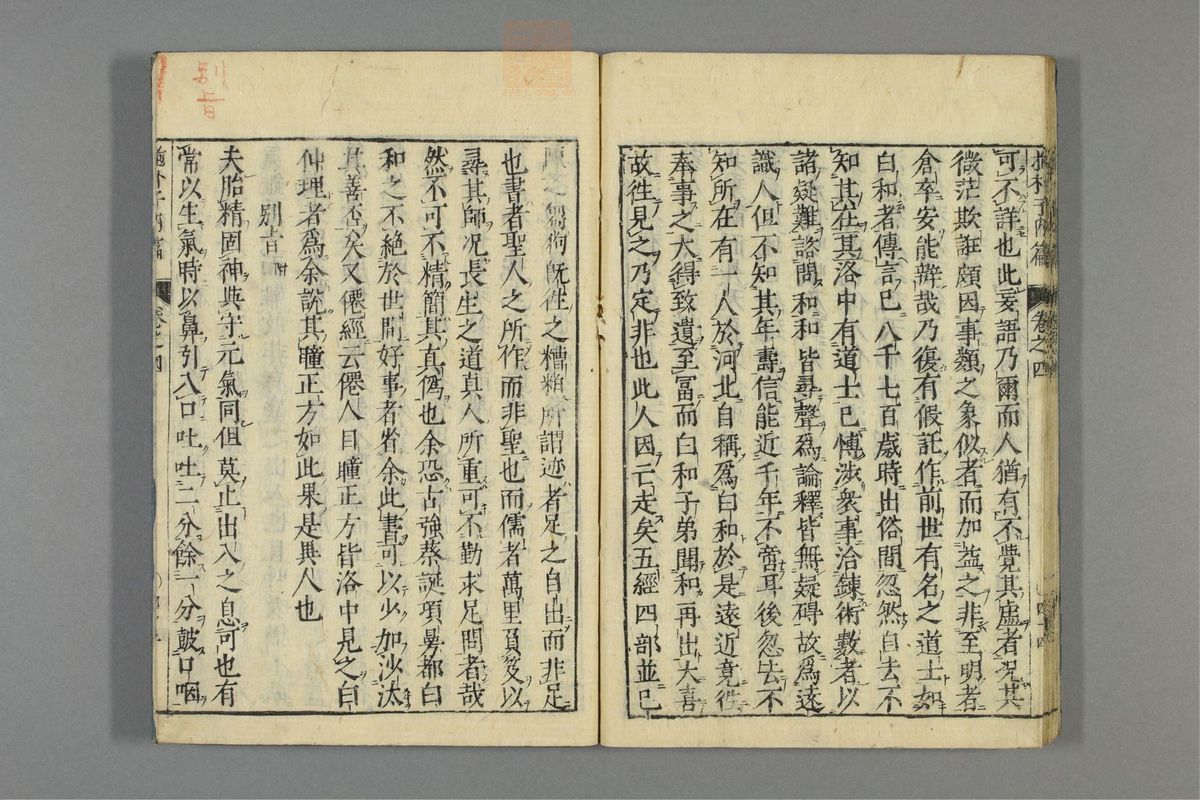 抱朴子內篇 卷之四
可不詳也此妄語乃爾而人猶有不覺其虛者況其
微茫欺誑頗因事類之象似者而加益之非至明者
倉卒安能辨哉乃復有假託作前世有名之道士如
白和者傳言已八千七百歲時出俗間忽然自去不
知其在其洛中有道士已愽涉衆事洽鍊術數者以
諸疑難諮問和和皆尋聲爲論釋皆無疑碍故爲遠
識人但不知其年壽信能近千年不啻耳後忽去不
知所在有一人於河北自稱爲白和於是遠近竟徃
奉事之大得致遺至富而白和子弟聞和再出大喜
故徃見之乃定非也此人因亡走矣五經四部並已
陳之芻狗旣徃之糟粕所謂迹者足之自出而非足
也書者聖人之所作而非聖也而儒者萬里負笈以
尋其師况長生之道真人所重可不勤求足問者哉
然不可不精簡其真僞也余恐古強蔡誕項㬓都白
和之不絕於世間好事者省余此書可以少加沙汰
其善否矣又僊經云僊人目瞳正方皆洛中見之白
仲理者爲余說其瞳正方如此果是異人也
別旨附
夫胎精固神與守元氣同但莫止出入之息可也有
常以生氣時以鼻引入口吐吐二分餘一分皷口咽
別旨